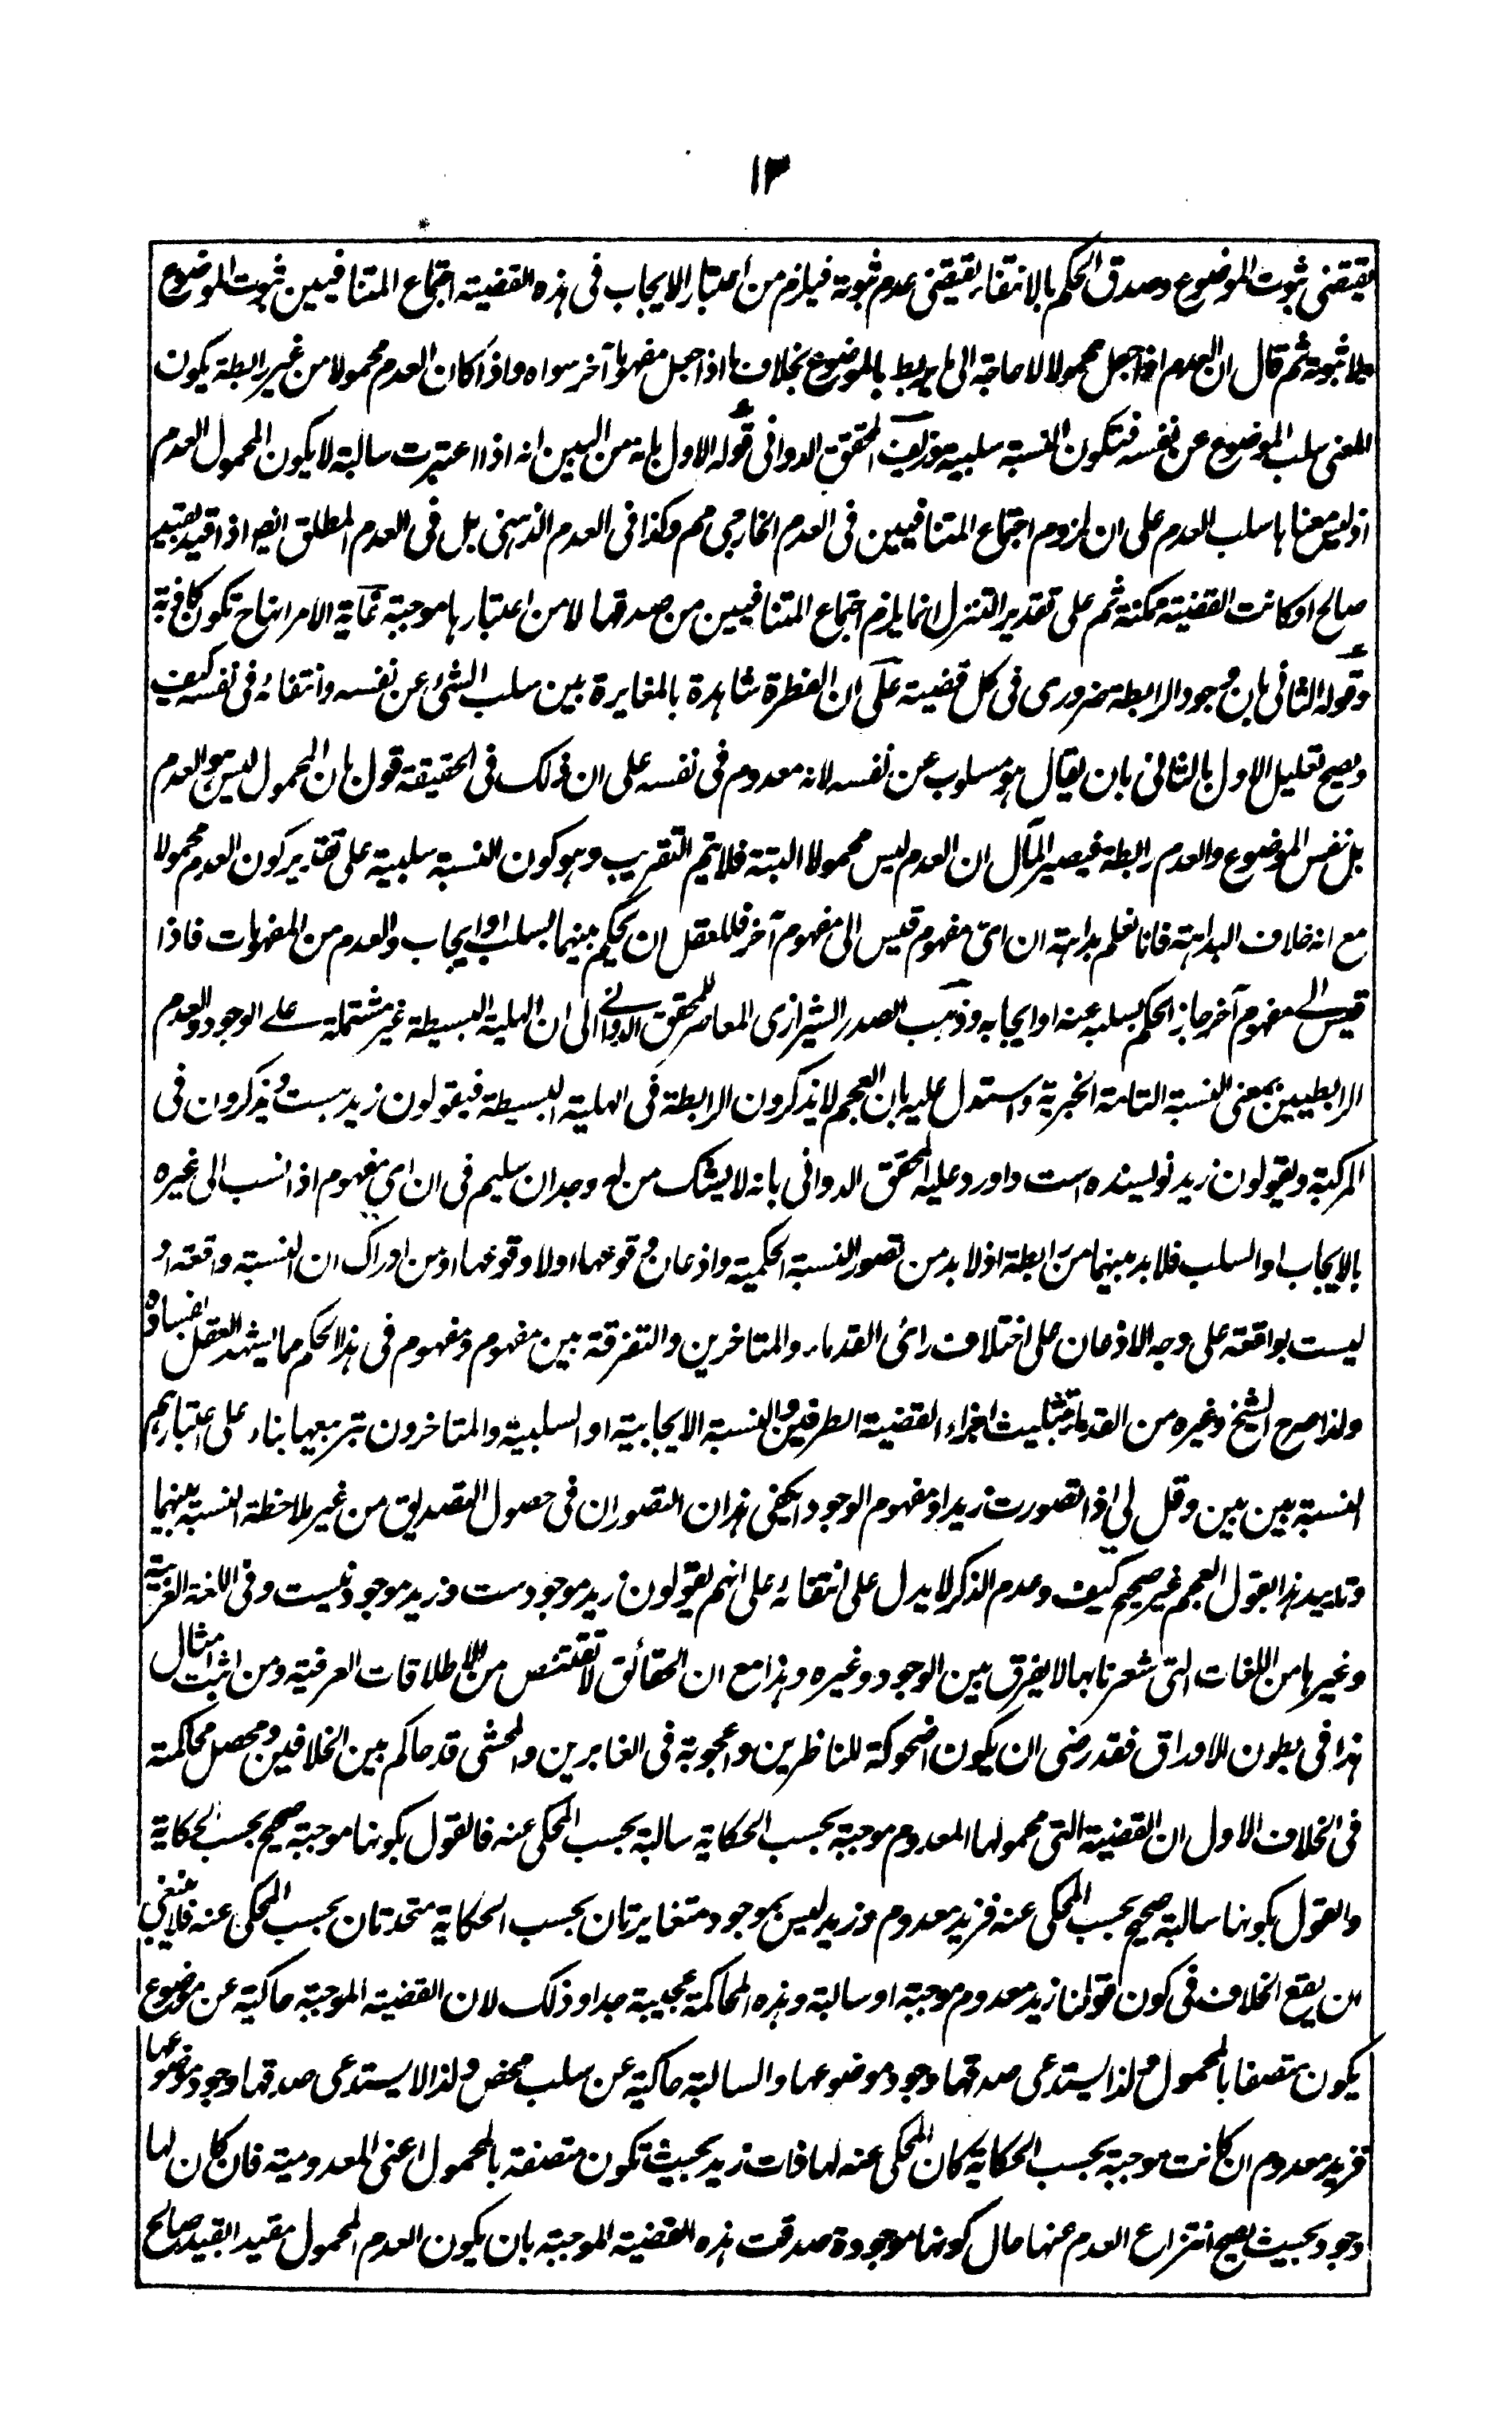 ١٣
يقتضى ثبوت الموضوع وصدق الحكم بالانتفاء يقتضى عدم ثبوته فيلزم من اعتبار الايجاب فى هذه القضية اجتماع المتنافيين ثبوت الموضوع
ولا ثبوته ثم قال ان العدم اذا جعل محمولا لا حاجة الى ما يربط بالموضوع بخلاف ما اذا جعل مفهوما آخر سواه واذا كان العدم محمولا من غير رابطة يكون
المعنى سلب الموضوع عن نفسه فتكون النسبة سلبية وزيف المحقق الدوانى قوله الاول بانه من البين انه اذا اعتبرت سالبة لا يكون المحمول العدم
اذ ليس معناها سلب العدم على ان لزوم اجتماع المتنافيين فى العدم الخارجى مم وكذا فى العدم الذهنى بل فى العدم المطلق ايضا اذا قيد بقيد
صالح او كانت القضية ممكنة ثم على تقدير التنزل انما يلزم اجتماع المتنافيين من صدقها لا من اعتبارها موجبة غاية الامر انها ح تكون كاذبة
وقوله الثانى بان وجود الرابطة ضرورى فى كل قضية على ان الفطرة شاهدة بالمغايرة بين سلب الشئ عن نفسه وانتفائه فى نفسه كيف
ويصح تعليل الاول بالثانى بان يقال هو مسلوب عن نفسه لانه معدوم فى نفسه على ان ذلك فى الحقيقة قول بان المحمول ليس هو العدم
بل نفس الموضوع والعدم رابطة فيصير المآل ان العدم ليس محمولا البتة فلا يتم التقريب وهو كون النسبة سلبية على تقدير كون العدم محمولا
مع انه خلاف البداهة فانا نعلم بداهة ان اى مفهوم قيس الى مفهوم آخر فللعقل ان يحكم بينهما بسلب او ايجاب والعدم من المفهومات فاذا
قيس الى مفهوم آخر جاز الحكم بسلبه عنه او ايجابه وذهب الصدر الشيرازى المعاصر للمحقق الدوانى الى ان الهلية البسيطة غير مشتملة على الوجود والعدم
الرابطيين بمعنى النسبة التامة الخبرية واستدل عليه بان العجم لا يذكرون الرابطة فى الهلية البسيطة فيقولون زيد هست ويذكرون فى
المركبة ويقولون زيد نويسنده است واورد عليه المحقق الدوانى بانه لا يشك من له وجدان سليم فى ان اى مفهوم اذا نسب الى غيره
بالايجاب او السلب فلا بد بينهما من رابطة اذ لا بد من تصور النسبة الحكمية واذعان وقوعها او لا وقوعها او من ادراك ان النسبة واقعة او
ليست بواقعة على وجه الاذعان على اختلاف رائى القدماء والمتاخرين والتفرقة بين مفهوم ومفهوم فى هذا الحكم مما يشهد العقل بفساده
ولذا صرح الشيخ وغيره من القدماء بتثليث اجزاء القضية الطرفين والنسبة الايجابية او السلبية والمتاخرون بتربيعها بناء على اعتبارهم
النسبة بين بين وقل لى اذا تصورت زيدا ومفهوم الوجود ايكفى هذان التصوران فى حصول التصديق من غير ملاحظة النسبة بينهما
وتاييد هذا بقول العجم غير صحيح كيف وعدم الذكر لا يدل على انتفائه على انهم يقولون زيد موجود ست وزيد موجود نيست وفى اللغة العربية
وغيرها من اللغات التى شعرنا بها لا يفرق بين الوجود وغيره وهذا مع ان الحقائق لا تقتنص من الاطلاقات العرفية ومن اثبت امثال
هذا فى بطون الاوراق فقد رضى ان يكون اضحوكة للناظرين واعجوبة فى الغابرين والمحشى قد حاكم بين الخلافين ومحصل محاكمته
فى الخلاف الاول ان القضية التى محمولها المعدوم موجبة بحسب الحكاية سالبة بحسب المحكى عنه فالقول بكونها موجبة صحيح بحسب الحكاية
والقول بكونها سالبة صحيح بحسب المحكى عنه فزيد معدوم وزيد ليس بموجود متغايرتان بحسب الحكاية متحدتان بحسب المحكى عنه فلا ينبغي
ان يقع الخلاف فى كون قولنا زيد معدوم موجبة او سالبة وهذه المحاكمة عجيبة جدا وذلك لان القضية الموجبة حاكية عن موضوع
يكون متصفا بالمحمول ولذا يستدعى صدقها وجود موضوعها والسالبة حاكية عن سلب محض ولذا لا يستدعى صدقها وجود موضوعها
فزيد معدوم ان كانت موجبة بحسب الحكاية كان المحكى عنه لها ذات زيد بحيث تكون متصفة بالمحمول اعنى المعدومية فان كان لها
وجود بحيث يصح انتزاع العدم عنها حال كونها موجودة صدقت هذه القضية الموجبة بان يكون العدم المحمول مقيدا بقيد صالح